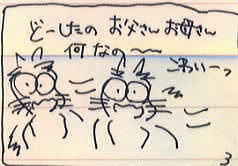 どーしたの お父さんお母さん
何なの〜〜
こわいーっ
3